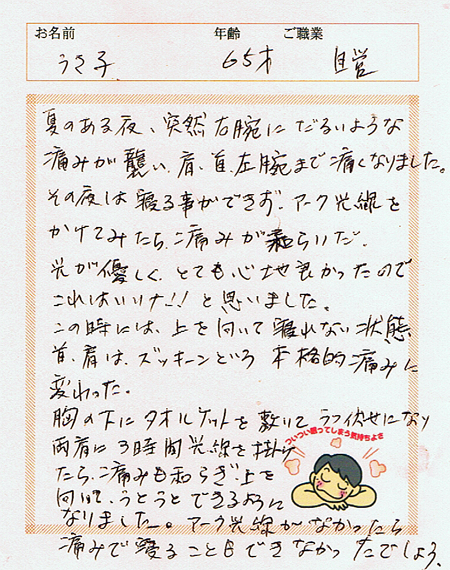 お名前 年齢 ご職業
うさ子 65才 自営
夏のある夜、突然右腕にだるいような
痛みが襲い、肩、首、左腕まで痛くなりました。
その夜は寝る事ができず、アーク光線を
かけてみたら、痛みが和らいだ、
光が優しく、とても心地良かったので
これはいいナ!!と思いました。
この時には、上を向いて寝れない状態
首、肩は、ズッキーンという本格的痛みに
変わった。
胸の下にタオルケットを敷いてうつ伏せになり
両肩に3時間光線を掛け
たら、痛みも和らぎ、上を
向いて、うとうとできるように
なりました。アーク光線がなかったら
痛みで寝ることもできなかったでしょう、
ついつい眠ってしまう気持ちよさ